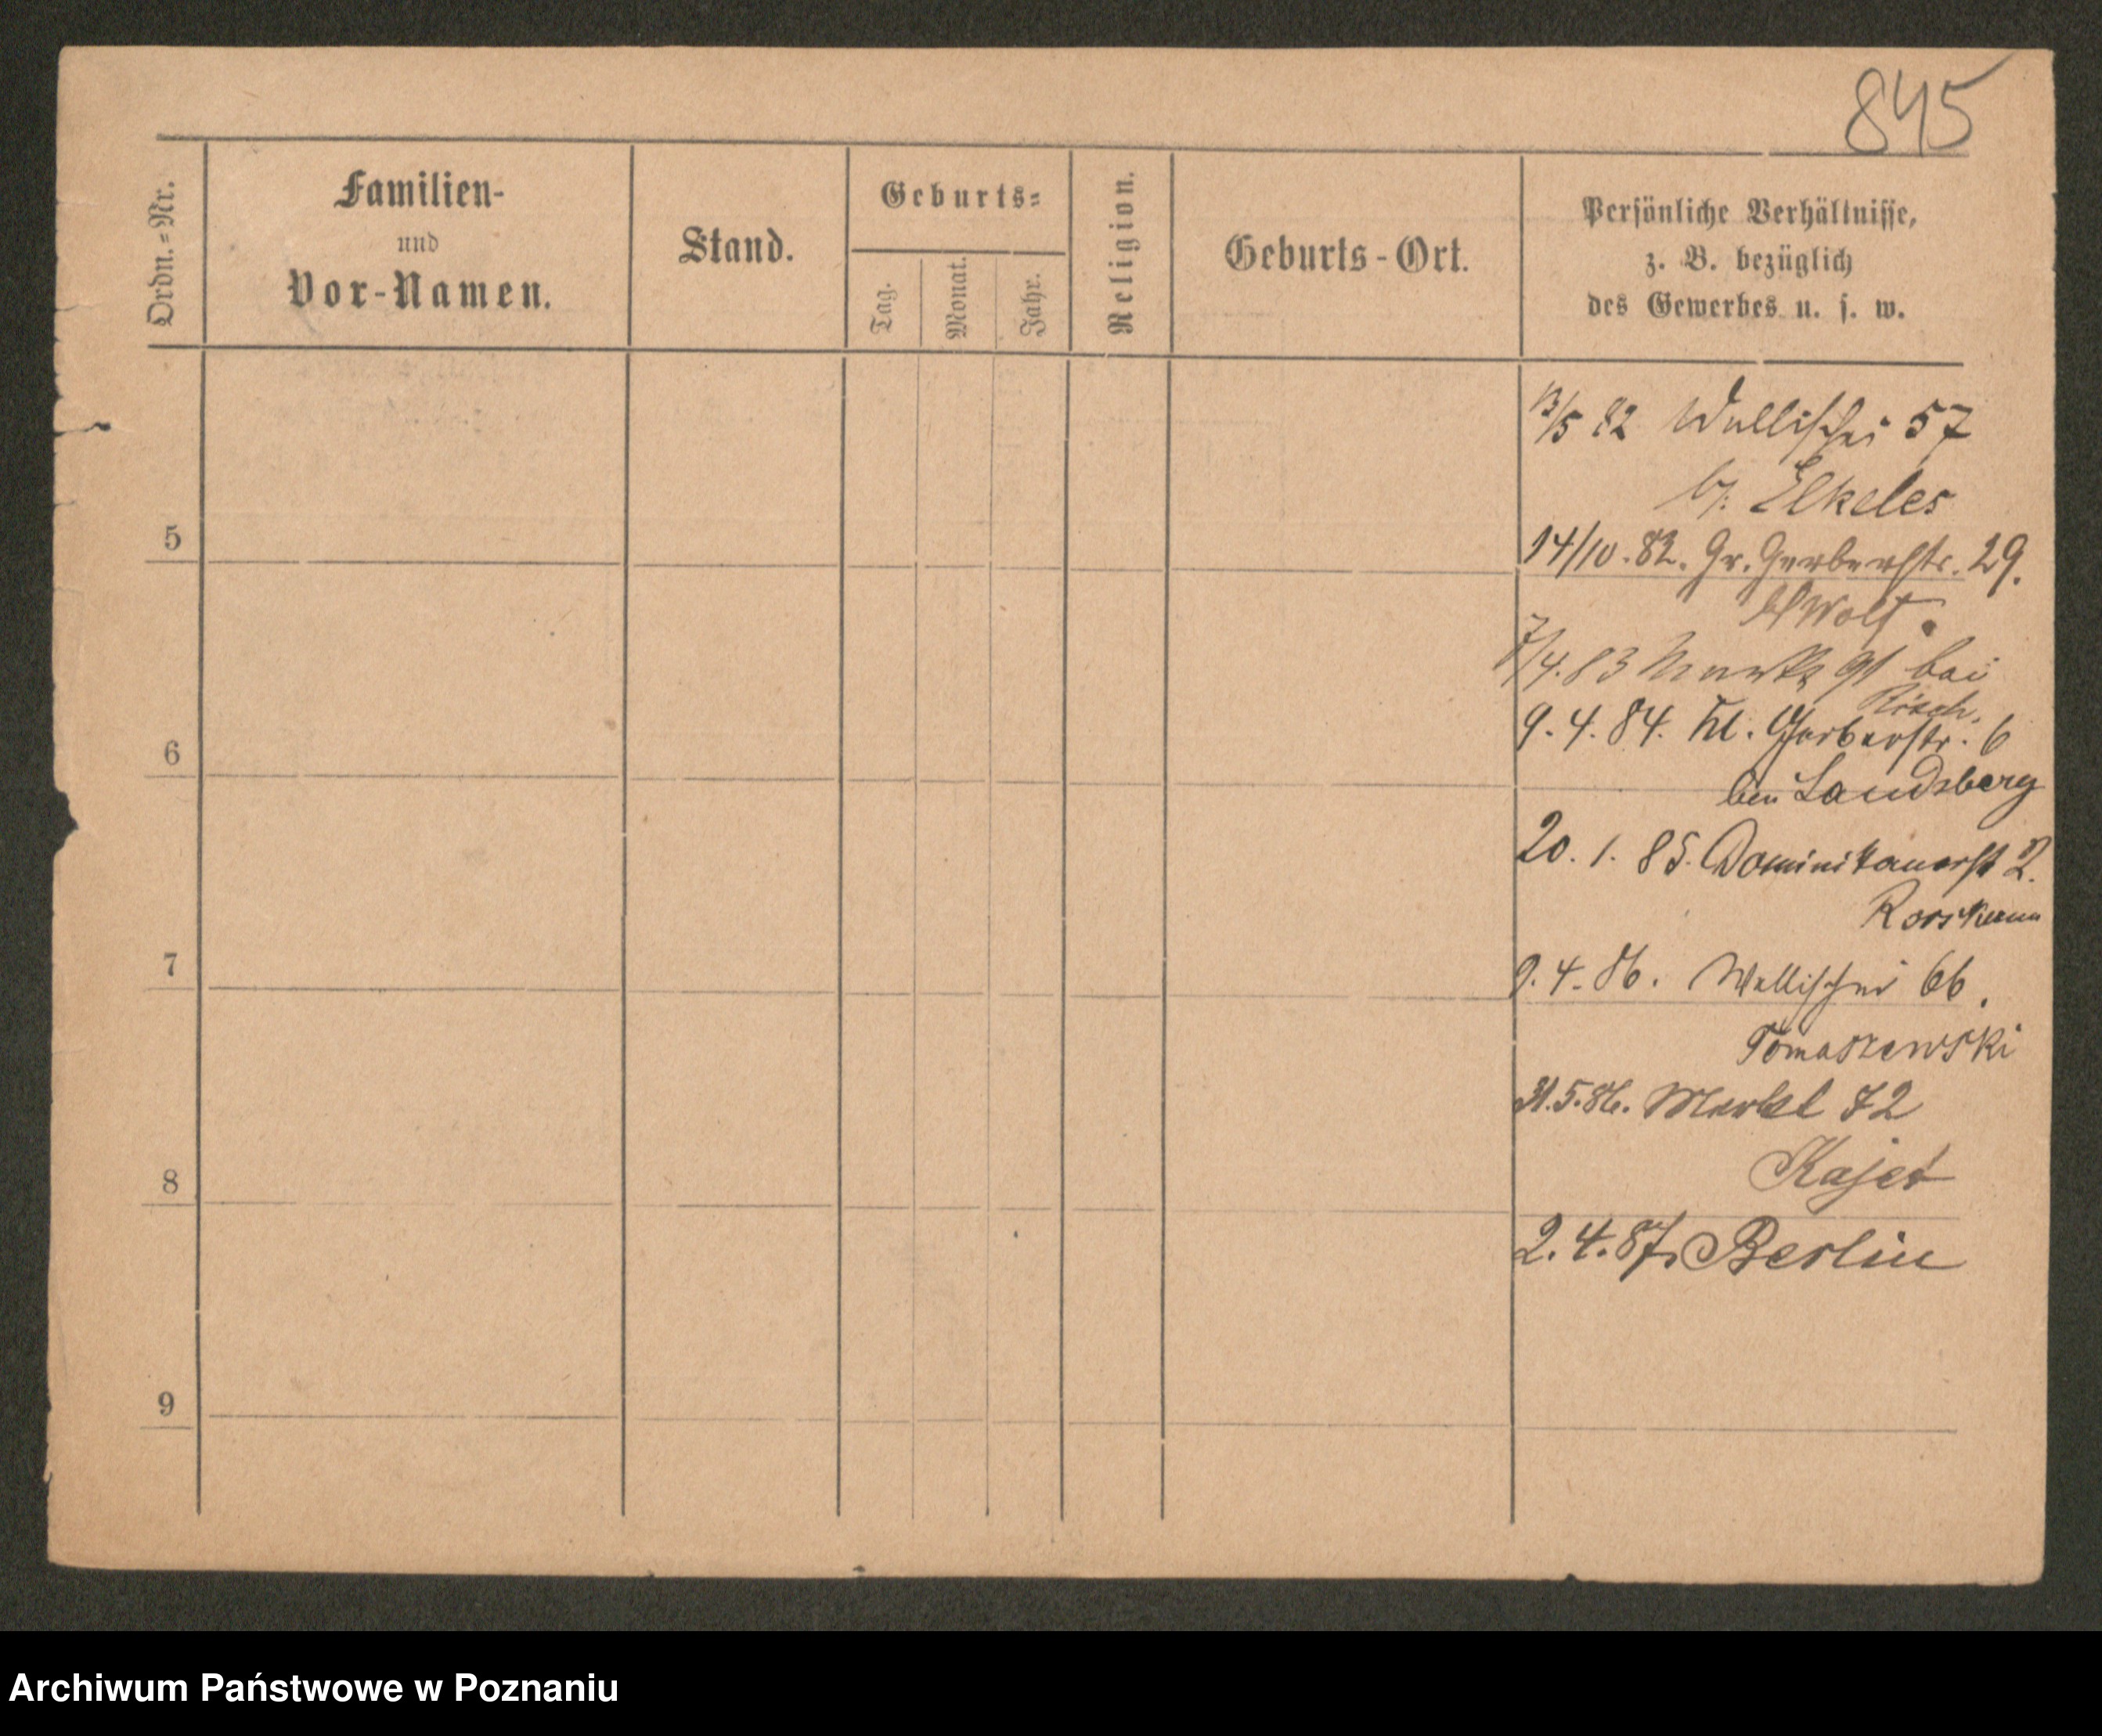 845
Ordn.=Nr.
Familien-
und
Vor-Namen.
Stand.
Geburts=
Tag.
Monat.
Jahr.
Religion.
Geburts-Ort.
Persönliche Verhältnisse,
z. B. bezüglich
des Gewerbes u. s. w.
13/5 82 Wallischei 57
b/. Elkeles
5
14/10. 82. Gr. Gerberstr. 29.
Wolf.
/4. 83 Markt 91 bei
9. 4. 84. Kl. Gerberstr. 6
6
bei Landsberg
20. 1. 85. Dominikanerst 2.
7
9. 4. 86. Wallischei 66.
Tomaszewski
31. 5. 86. Markt 72
8
Kajet
2. 4. 87. Berlin
9
Archiwum Państwowe w Poznaniu